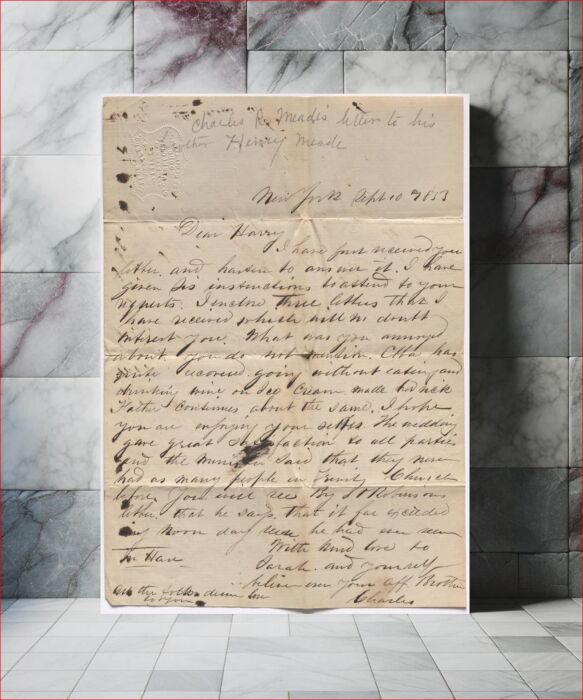 Charles R. Meade's letter to his
brother Henry Meade
New York Sept 10 1853
Dear Harry
I have just received your
letter and hasten to answer it. I have
given instructions to attend to your
requests. I enclose three letters that I
have received which will no doubt
interest you. What was you annoyed
about, you do not mention. has
quite recovered. going without eating and
drinking wine on Ice Cream made her sick
Father Continues about the same. I hope
you are enjoying your selves. The wedding
gave great satisfaction to all parties
and the Minister said that they never
had as many people in Church
before. You will see By Robinsons
letter. that he says. that it far exceeded
any Noon day he had ever seen
With kind love to
In Haste Sarah. and yourself
believe ever your aff Brother
Charles
All the folks love
to you